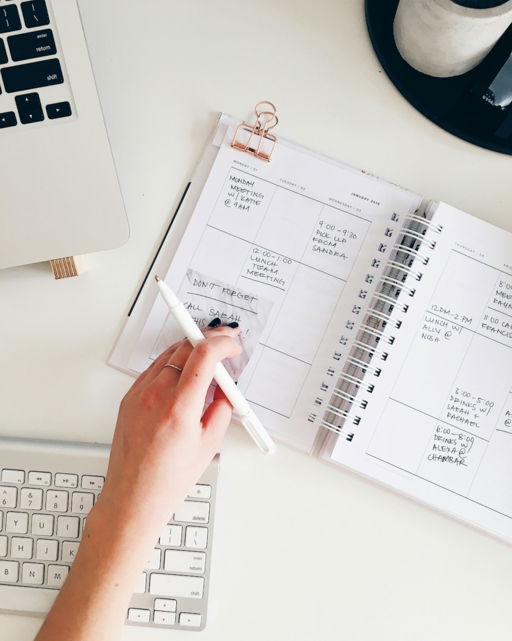 JANUARY 2018
MONDAY / 01
TUESDAY / 02
WEDNESDAY / 03
MONDAY
MEETING
W/ KATIE
@ 9AM
9:00-9:30
PICK UP
FROM
SANDRA
12:00-1:00
LUNCH
TEAM
MEETING
DON'T FORGET
CALL SARAH
THIS
THURSDAY / 04
12PM-2PM
LUNCH W/
ALLY @
NOSH
3:00-5:00
DRINKS W/
SARAH +
RACHAEL
6:00-8:00
DRINKS W/
ALEXA @
CHAMBAR
8:0
MEET
8:00
FRANCIS
enter
return
shift
delete
enter
return
shift
6
7
8
9
Y
U
G
H
J
K
B
N
M